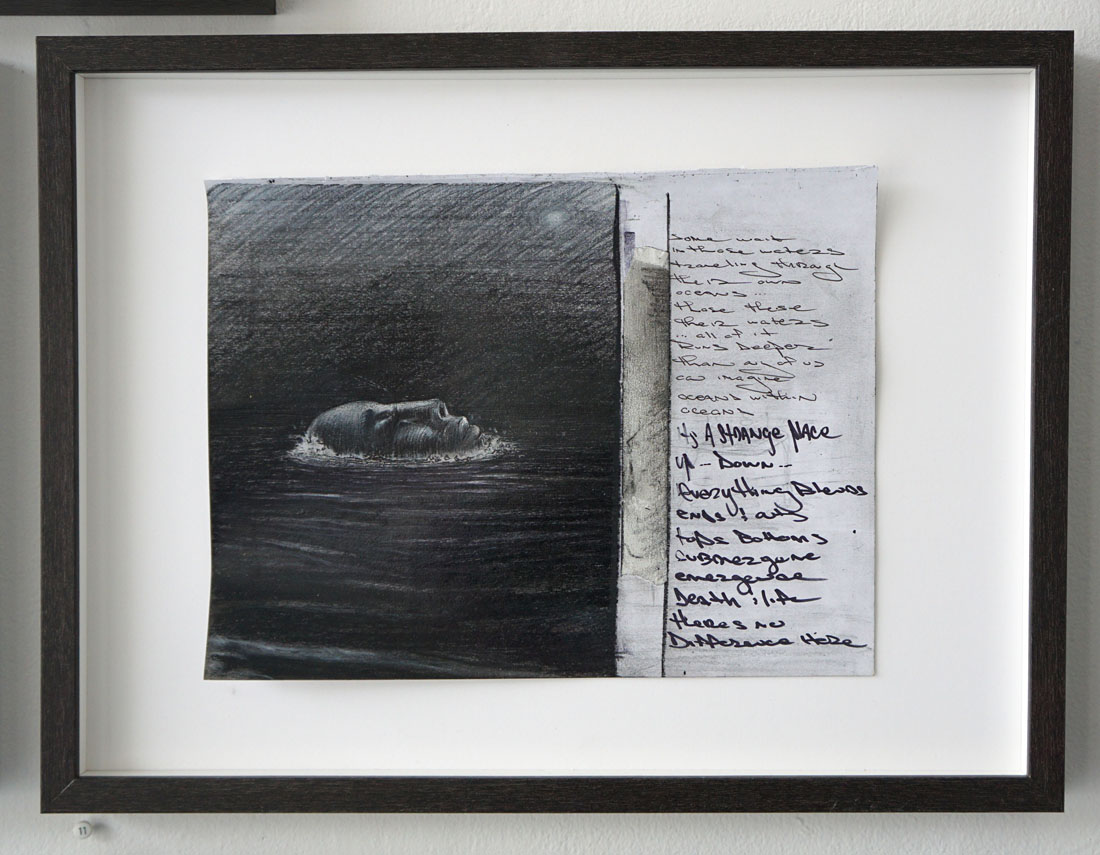 some wait
in those waters
traveling through
their own
oceans...
those these
their waters
... all of it
Runs Deeper
than any of us
can imagine
oceans within
oceans
its A STRANGE PLACE
up -- Down --
Everything Blends
ends &
tops Bottoms
submergence
emergence
Death & life
theres no
Difference Here
11